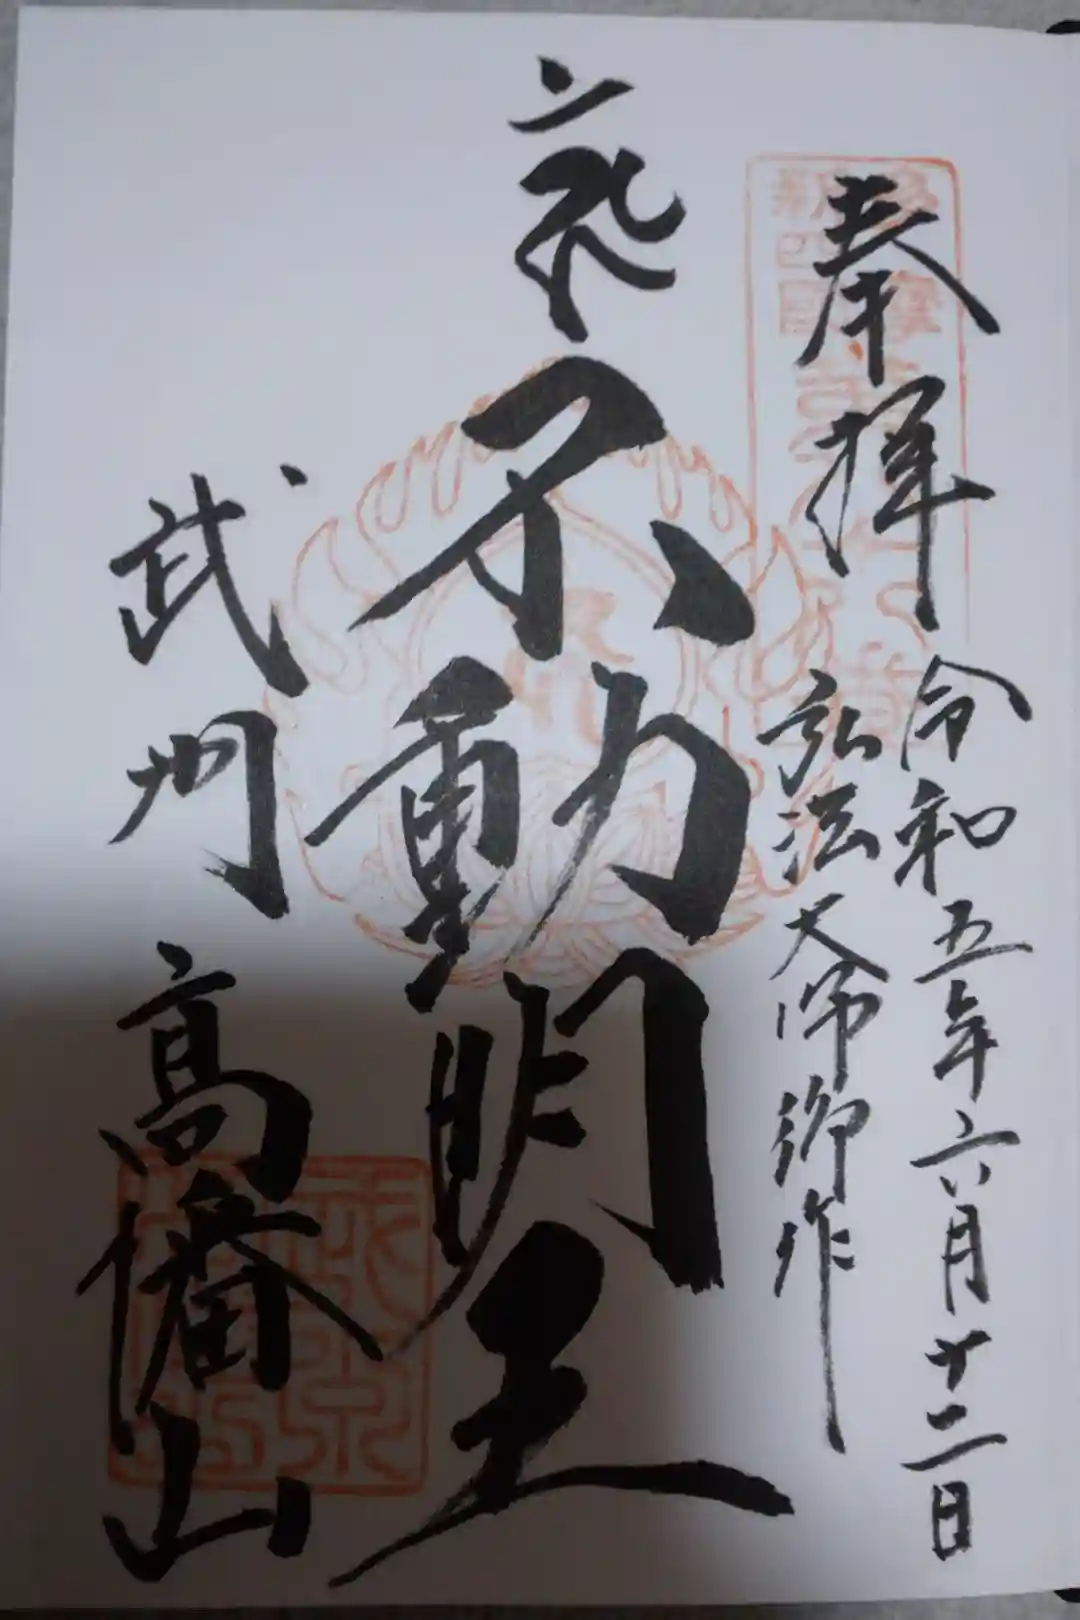 奉拝
令和五年六月十二日
弘法大師御作
不動明王
武州
高幡山
多摩
新四国